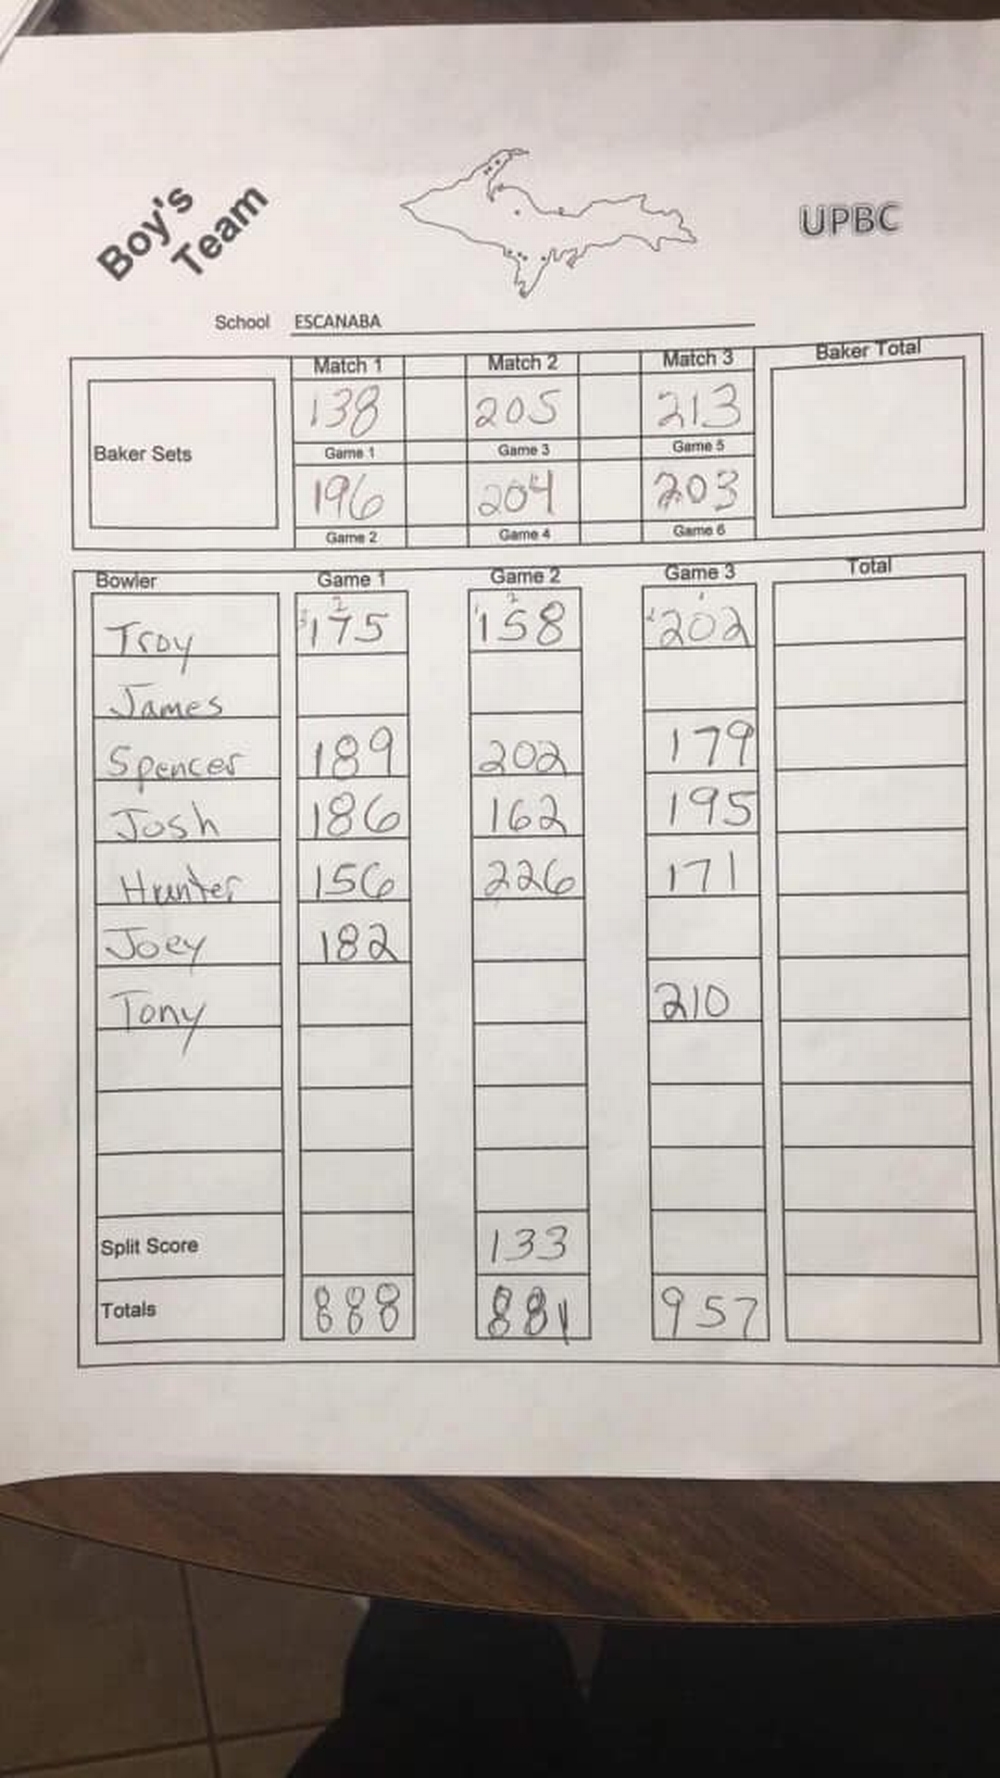 Boy's
Team
UPBC
School ESCANABA
Match 1 Match 2 Match 3 Baker Total
138 205 213
Baker Sets Game 1 Game 3 Game 5
196 204 203
Game 2 Game 4 Game 6
Bowler Game 1 Game 2 Game 3 Total
Troy 175 158 202
James
Spencer 189 202 179
Josh 186 162 195
Hunter 156 226 171
Joey 182
Tony 210
Split Score 133
Totals 888 881 957